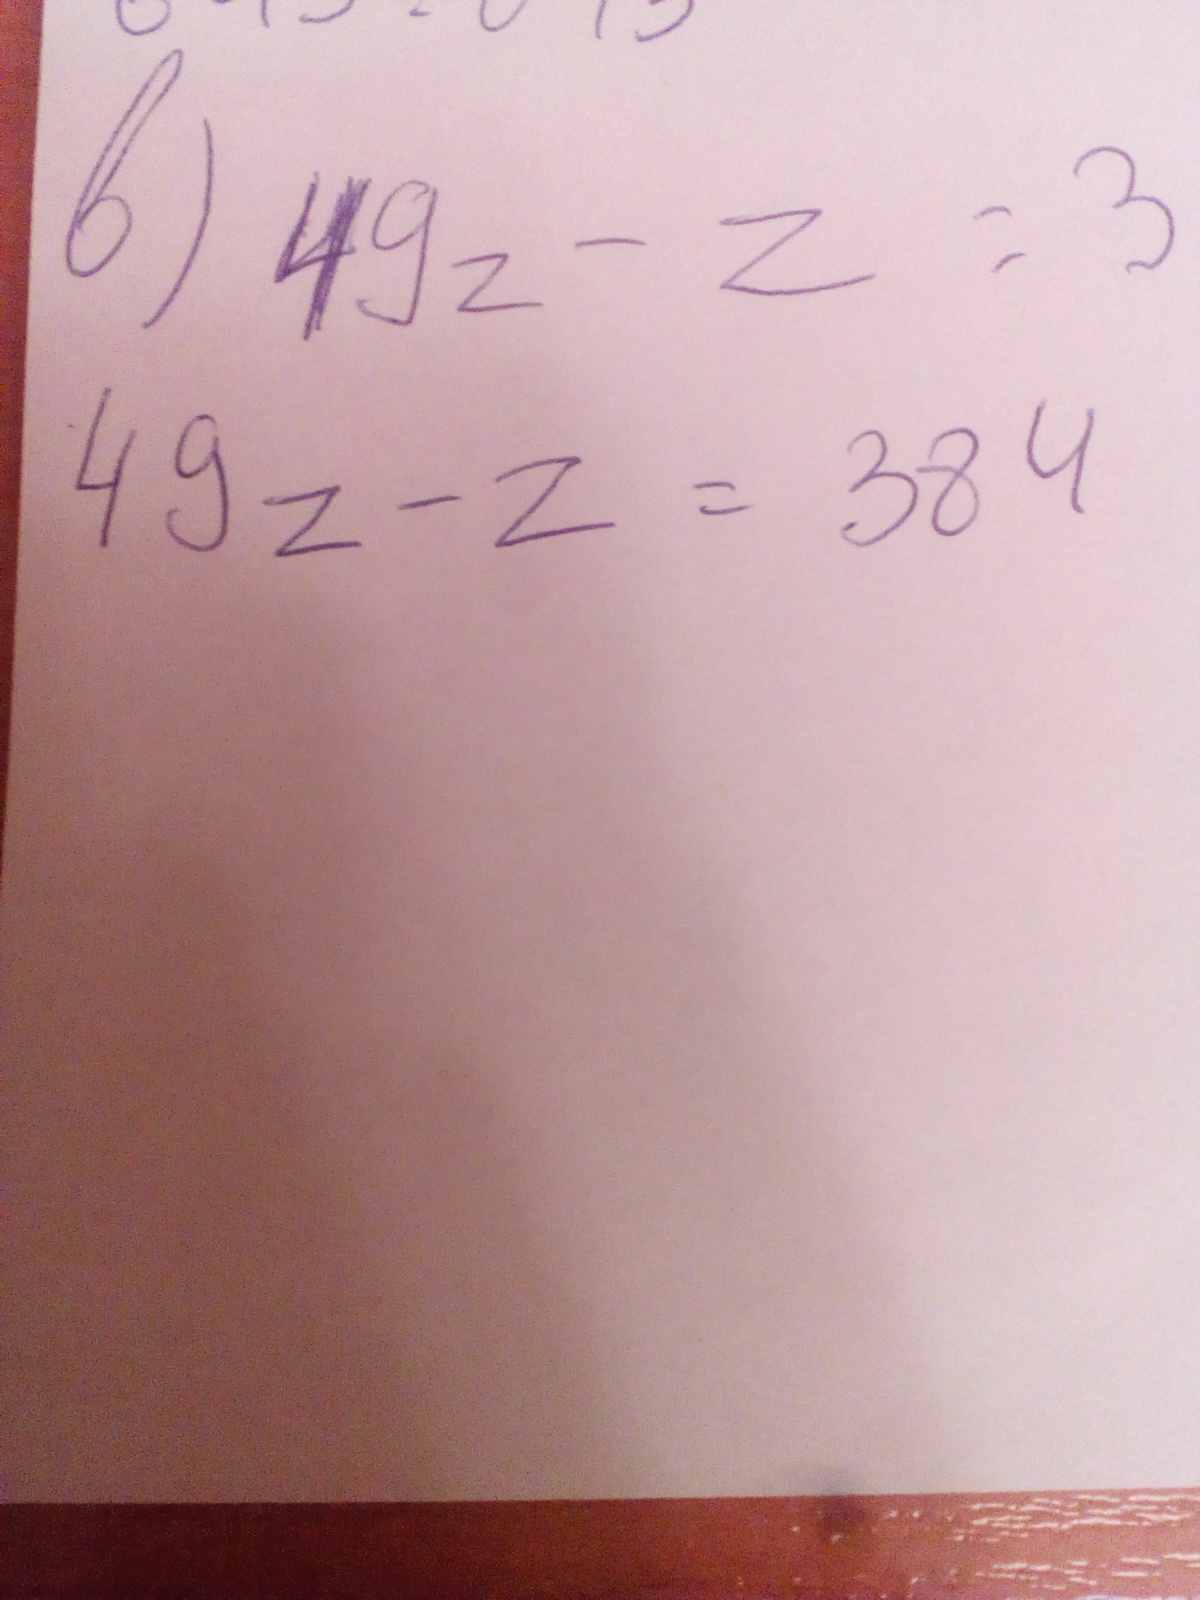 в) 49z - z = 3
49z - z = 384